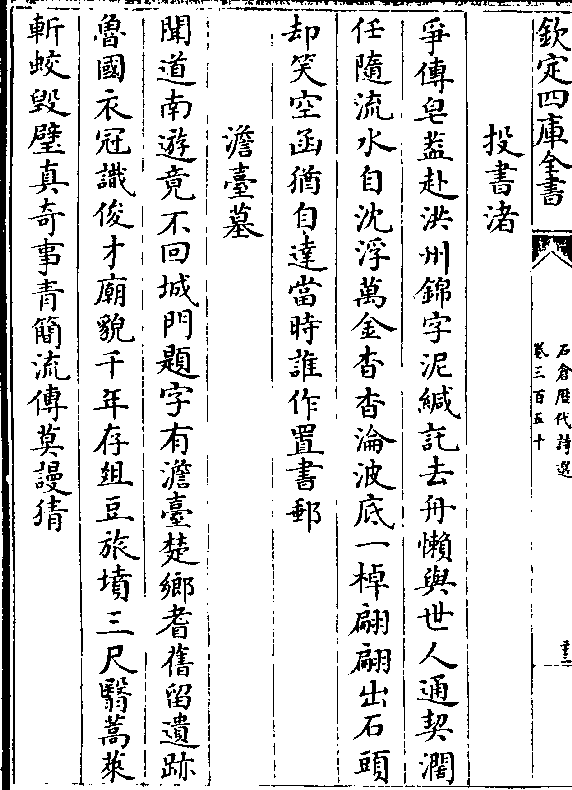 欽定四庫全書
石倉歷代詩選
卷三百五十
投書渚
爭傳皂葢赴洪州錦字泥緘託去舟懶與世人通契濶
任隨流水自沈浮萬金杳杳淪波底一棹翩翩出石頭
却笑空函猶自達當時誰作置書郵
澹臺墓
聞道南遊竟不回城門題字有澹臺楚鄉耆舊留遺跡
魯國衣冠識俊才廟貌千年存組豆旅墳三尺翳蒿萊
斬蛟毀璧真奇事青簡流傳莫謾猜